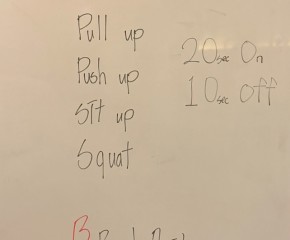 Pull up
Push up
Sit up
Squat
20sec On
10sec off